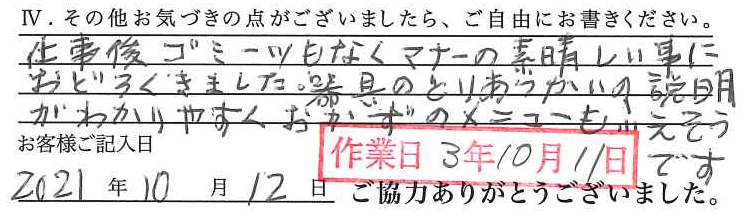 Ⅳ．その他お気づきの点がございましたら、ご自由にお書きください。
仕事後ゴミ一ツもなくマナーの素晴しい事に
おどろくきました。器具のとりあつかいの説明
がわかりやすくおかずのメニューも えそう
です
お客様ご記入日
作業日 3年10月11日
2021年10月12日 ご協力ありがとうございました。